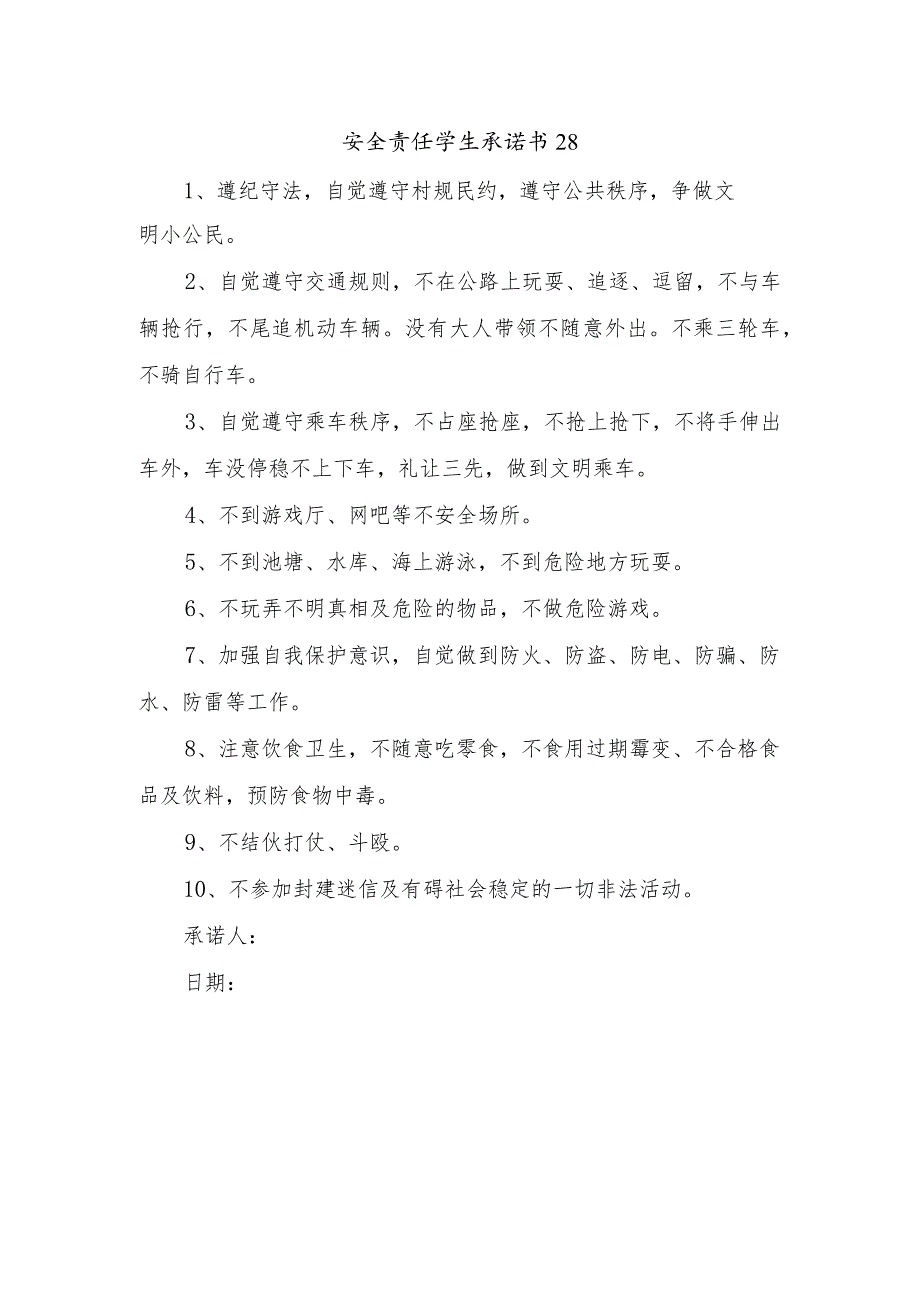 安全责任学生承诺书 28
1、遵纪守法，自觉遵守村规民约，遵守公共秩序，争做文
明小公民。
2、自觉遵守交通规则，不在公路上玩耍、追逐、逗留，不与车
辆抢行，不尾追机动车辆。没有大人带领不随意外出。不乘三轮车，
不骑自行车。
3、自觉遵守乘车秩序，不占座抢座，不抢上抢下，不将手伸出
车外，车没停稳不上下车，礼让三先，做到文明乘车。
4、不到游戏厅、网吧等不安全场所。
5、不到池塘、水库、海上游泳，不到危险地方玩耍。
6、不玩弄不明真相及危险的物品，不做危险游戏。
7、加强自我保护意识，自觉做到防火、防盗、防电、防骗、防
水、防雷等工作。
8、注意饮食卫生，不随意吃零食，不食用过期霉变、不合格食
品及饮料，预防食物中毒。
9、不结伙打仗、斗殴。
10、不参加封建迷信及有碍社会稳定的一切非法活动。
承诺人：
日期：